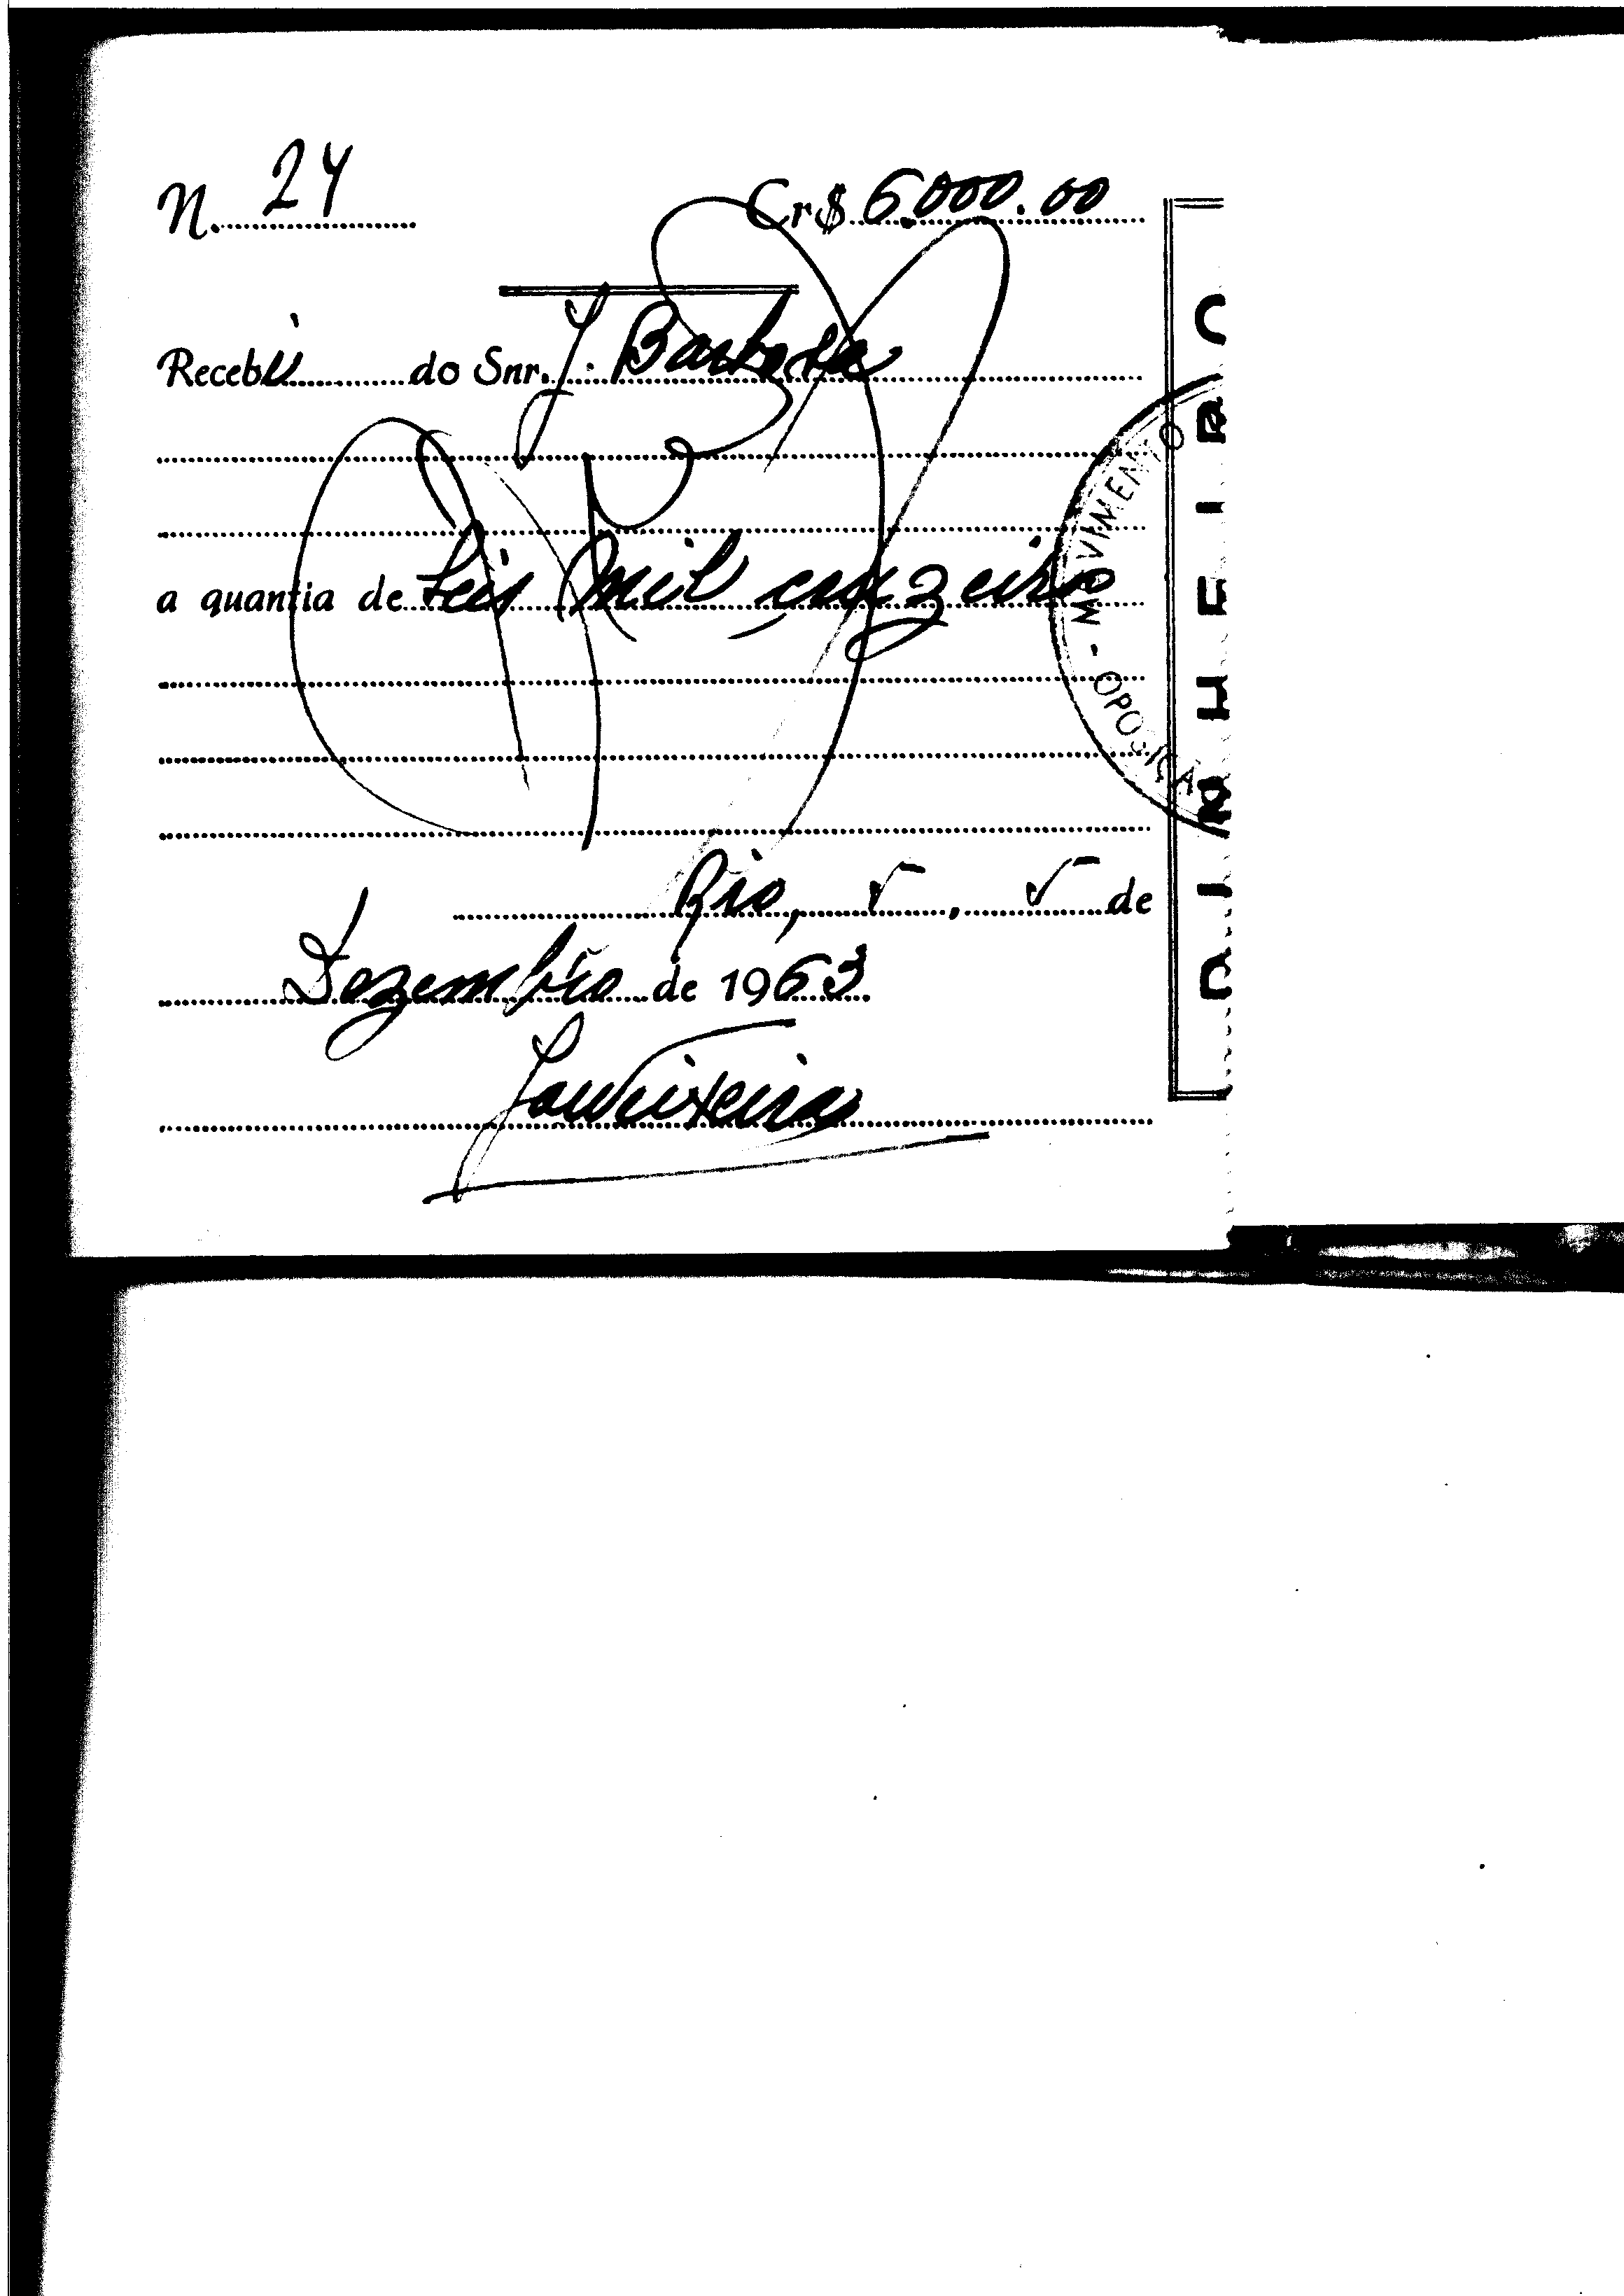 N. 24
Cr$ 6.000.00
Recebi do Snr. J. Barbosa
a quantia de Seis mil cruzeiros
Rio, de
Dezembro de 1963
MOVIMENTO
- OPOSIÇÃ